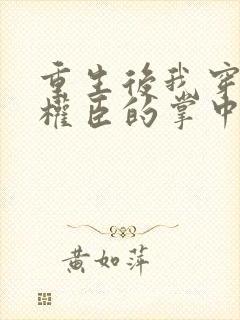 重生後我穿
權臣的掌中
黃如萍